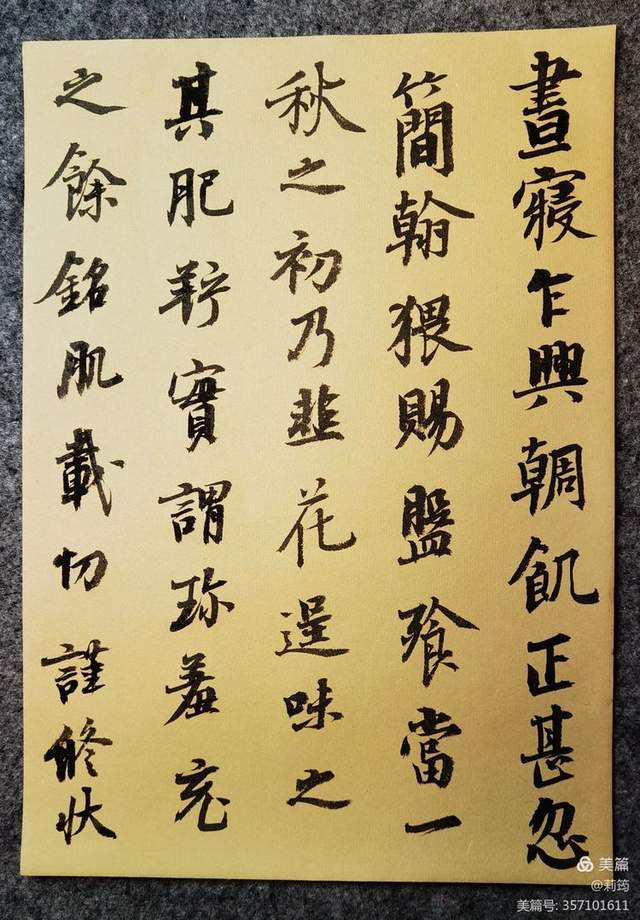 晝寢乍興輖飢正甚忽
簡翰猥賜盤飧當一
秋之初乃韭花逞味之
其肥羜實謂珍羞充
之餘銘肌載切謹修狀
美篇
@莉筠
美篇号: 357101611